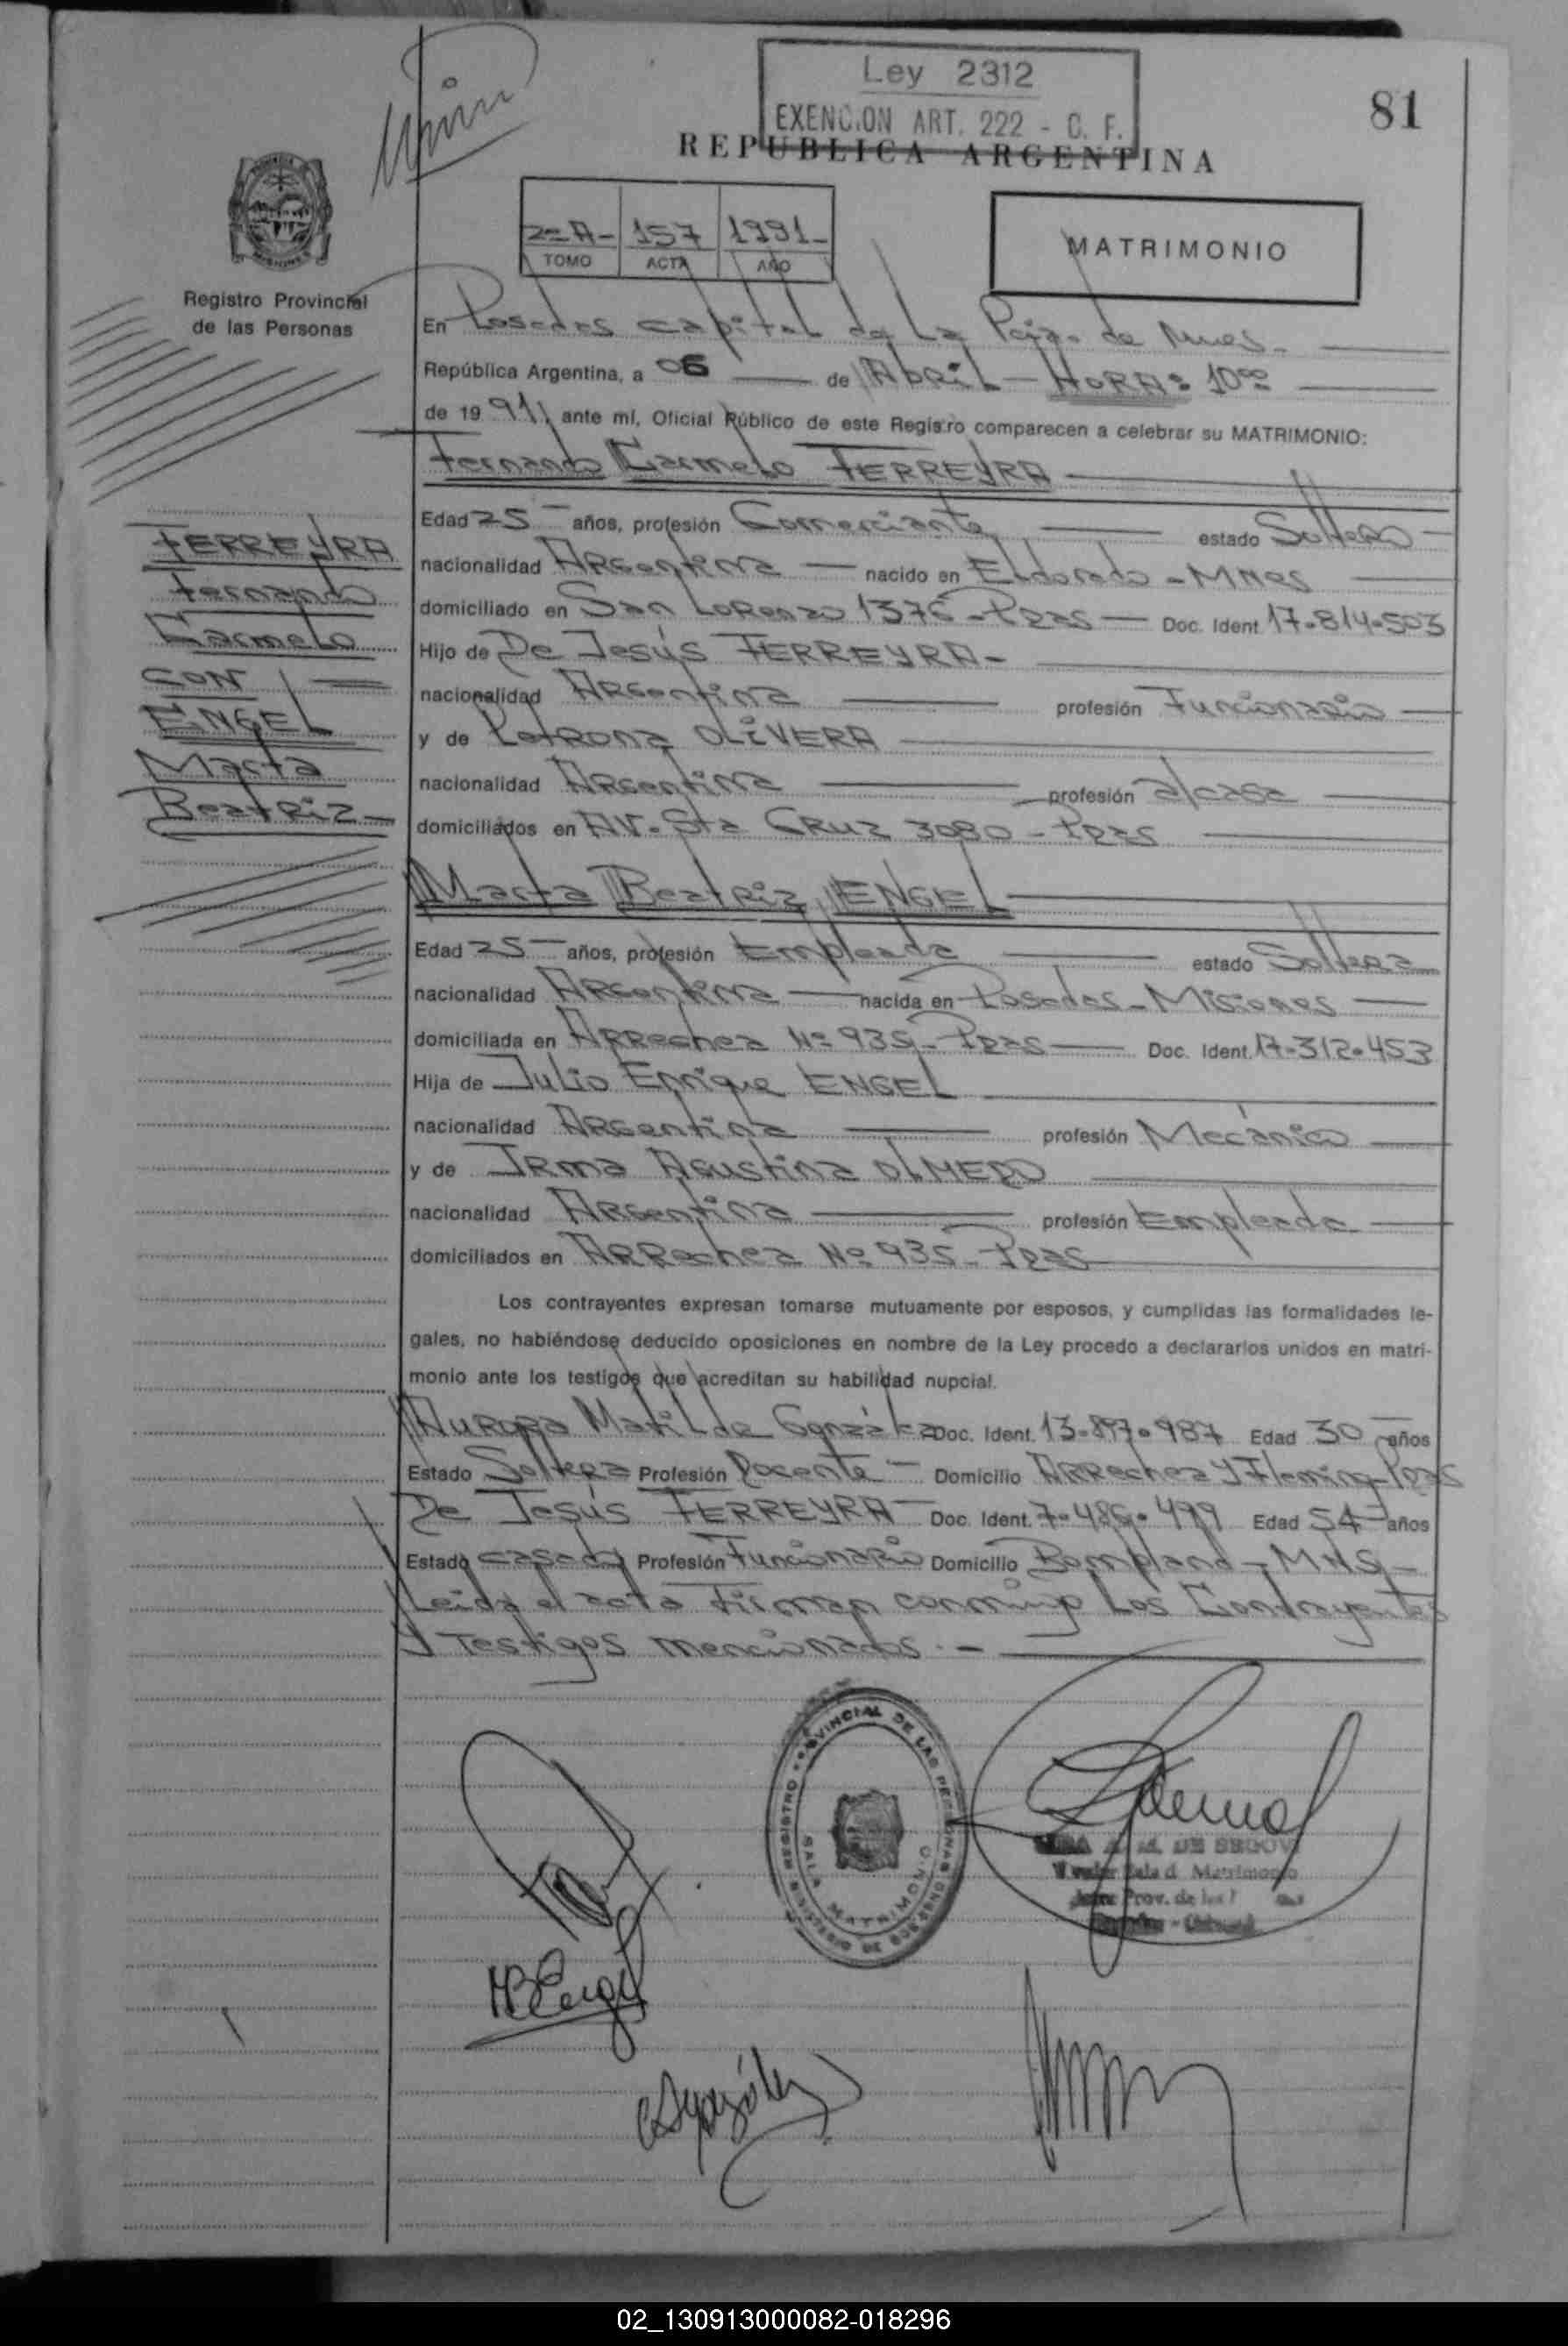 Ley 2312
EXENCION ART. 222 - C. F.
81
REPUBLICA ARGENTINA
2º A- 157 1991-
TOMO ACTA AÑO
MATRIMONIO
Registro Provincial
de las Personas
En Posadas capital de La Pcia. de Mnes.
República Argentina, a 06 de Abril - HORA: 10⁰⁰
de 1991, ante mí, Oficial Público de este Registro comparecen a celebrar su MATRIMONIO:
Fernando Carmelo FERREYRA
FERREYRA
Fernando
Carmelo
CON
ENGEL
Marta
Beatriz
Edad 25 años, profesión Comerciante estado Soltero
nacionalidad Argentina nacido en Eldorado - Mnes
domiciliado en San Lorenzo 1376 - Pdas Doc. Ident. 17.814.503
Hijo de De Jesús FERREYRA-
nacionalidad Argentina profesión Funcionario
y de Petrona OLIVERA
nacionalidad Argentina profesión a/casa
domiciliados en AV. Sta Cruz 3080 - Pdas
Marta Beatriz ENGEL
Edad 25 años, profesión Empleada estado Soltera
nacionalidad Argentina nacida en Posadas - Misiones
domiciliada en Arrechea Nº 935 - Pdas Doc. Ident. 17.312.453
Hija de Julio Enrique ENGEL
nacionalidad Argentina profesión Mecánico
y de Irma Agustina OLMEDO
nacionalidad Argentina profesión Empleada
domiciliados en Arrechea Nº 935 - Pdas
Los contrayentes expresan tomarse mutuamente por esposos, y cumplidas las formalidades le-
gales, no habiéndose deducido oposiciones en nombre de la Ley procedo a declararlos unidos en matri-
monio ante los testigos que acreditan su habilidad nupcial.
Aurora Matilde González Doc. Ident. 13.897.987 Edad 30 años
Estado Soltera Profesión Docente Domicilio Arrechea y Fleming - Pdas
De Jesús FERREYRA Doc. Ident. 7.486.499 Edad 54 años
Estado casado Profesión Funcionario Domicilio Bompland - Mns
Leida el acta firman conmigo Los Contrayentes
y Testigos mencionados.-
REGISTRO PROVINCIAL DE LAS PERSONAS
SALA MATRIMONIO
A. M. DE SEGOVI
Sala d Matrimonio
Prov. de las
MB Engel
AGonzález
02_130913000082-018296